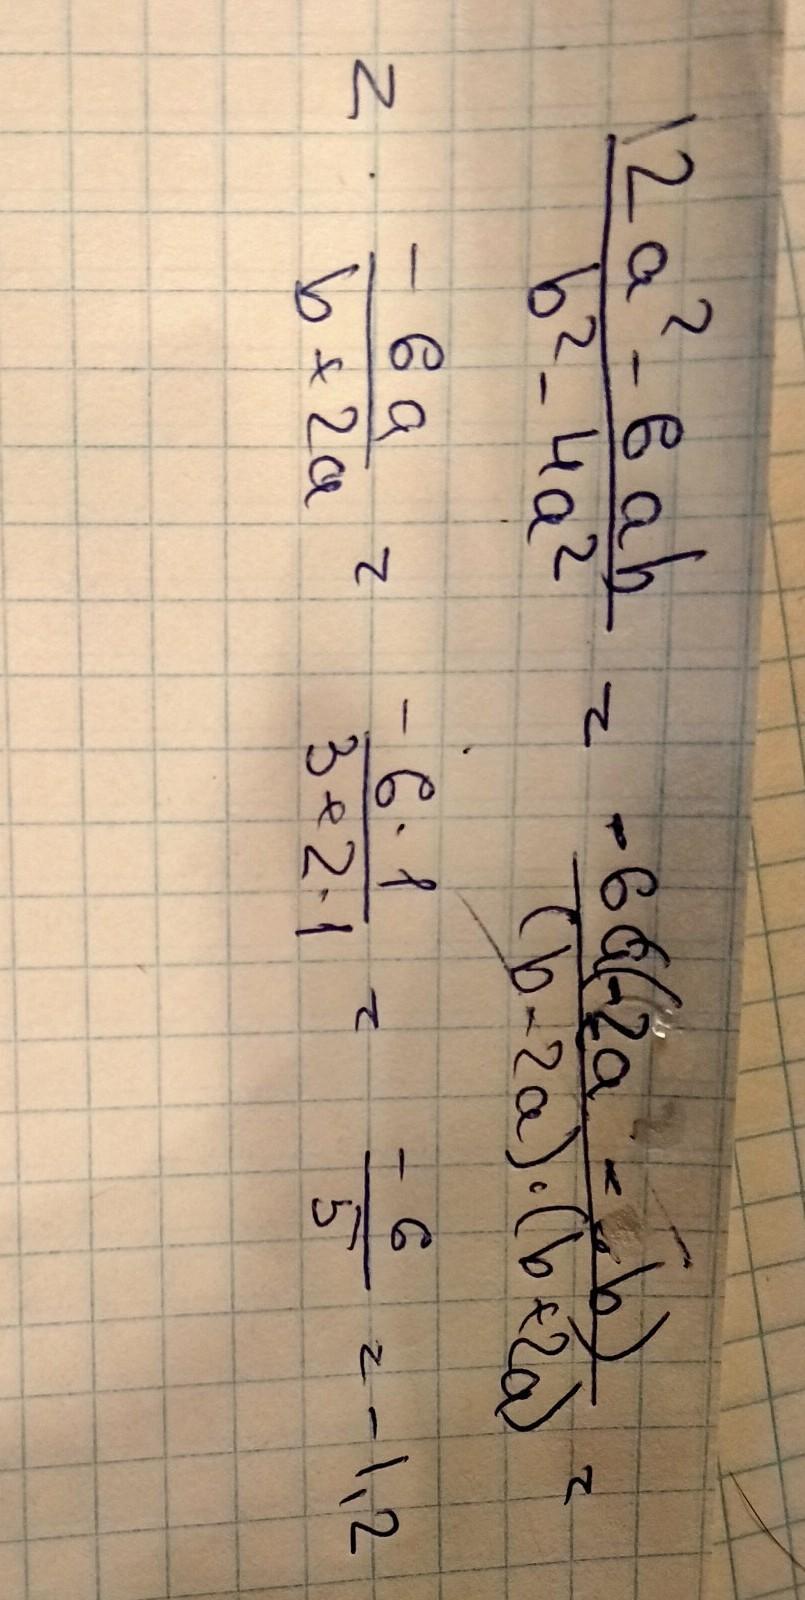 12a² - 6ab / b² - 4a² = -6a(-2a - b) / (b - 2a) · (b + 2a) =
= -6a / b + 2a = -6 · 1 / 3 + 2 · 1 = -6 / 5 = -1,2